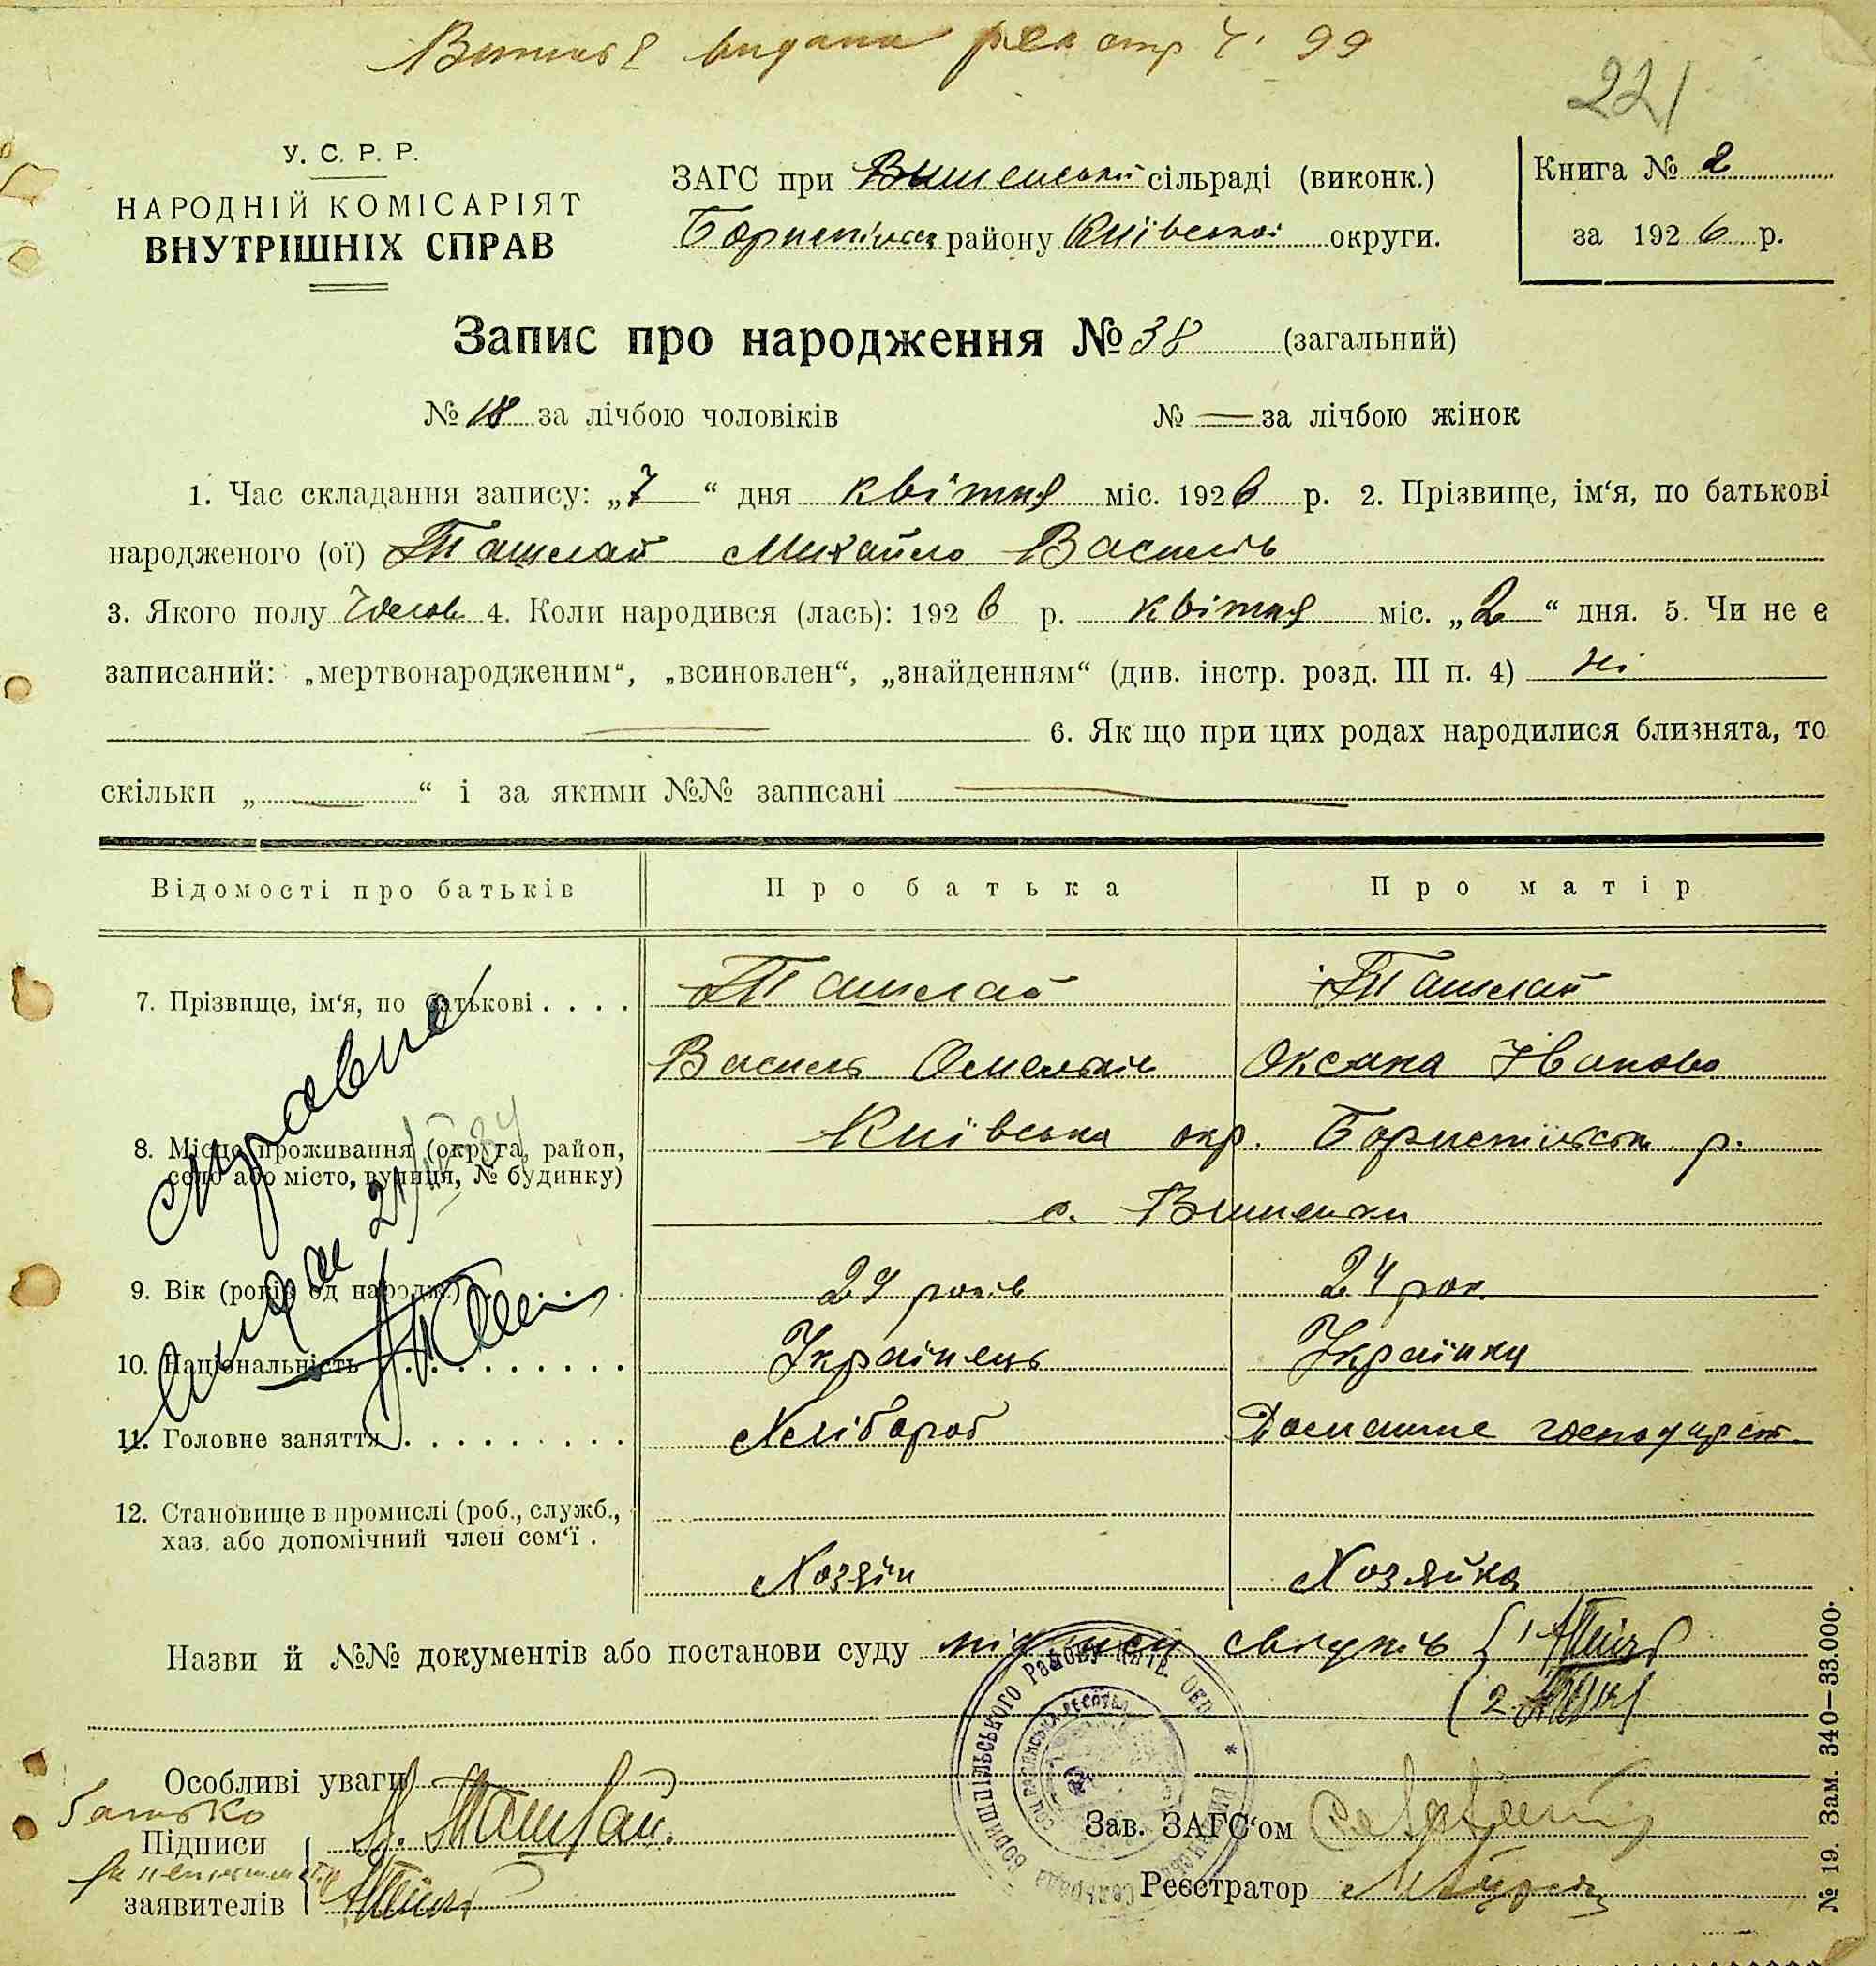 видана реєстр ч. 99
221
У. С. Р. Р.
НАРОДНІЙ КОМІСАРІЯТ
ВНУТРІШНІХ СПРАВ
ЗАГС при Вишенській сільраді (виконк.)
Бориспільск району Київської округи.
Книга № 2
за 1926 р.
Запис про народження № 38 (загальний)
№ 18 за лічбою чоловіків № — за лічбою жінок
1. Час складання запису: „7“ дня квітня міс. 1926 р. 2. Прізвище, ім‘я, по батькові
народженого (ої) Ташлай Михайло Василів
3. Якого полу Чолов 4. Коли народився (лась): 1926 р. квітня міс. „2“ дня. 5. Чи не є
записаний: „мертвонародженим“, „всиновлен“, „знайденням“ (див. інстр. розд. III п. 4) ні
— 6. Як що при цих родах народилися близнята, то
скільки „—“ і за якими №№ записані —
Відомості про батьків Про батька Про матір
7. Прізвище, ім‘я, по батькові . . . . Ташлай Ташлай
Василь Омельків Оксана Іванова
8. Місце проживання (округа, район, село або місто, вулиця, № будинку) Київська окр. Бориспільськ р.
с. Вишеньки
9. Вік (років од народж.) 29 років 24 рок.
10. Національність . . . . . . . . . Українець Українка
11. Головне заняття . . . . . . . . . Хлібороб Домашнє господарст.
12. Становище в промислі (роб., служб.,
хаз. або допомічний член сем‘ї . Хозяїн Хозяйка
Назви й №№ документів або постанови суду підписи свідків 1
2
Особливі уваги
батько
Підписи Ташлай
заявителів
Зав. ЗАГС‘ом
Реєстратор
№ 19. Зам. 340—33.000.